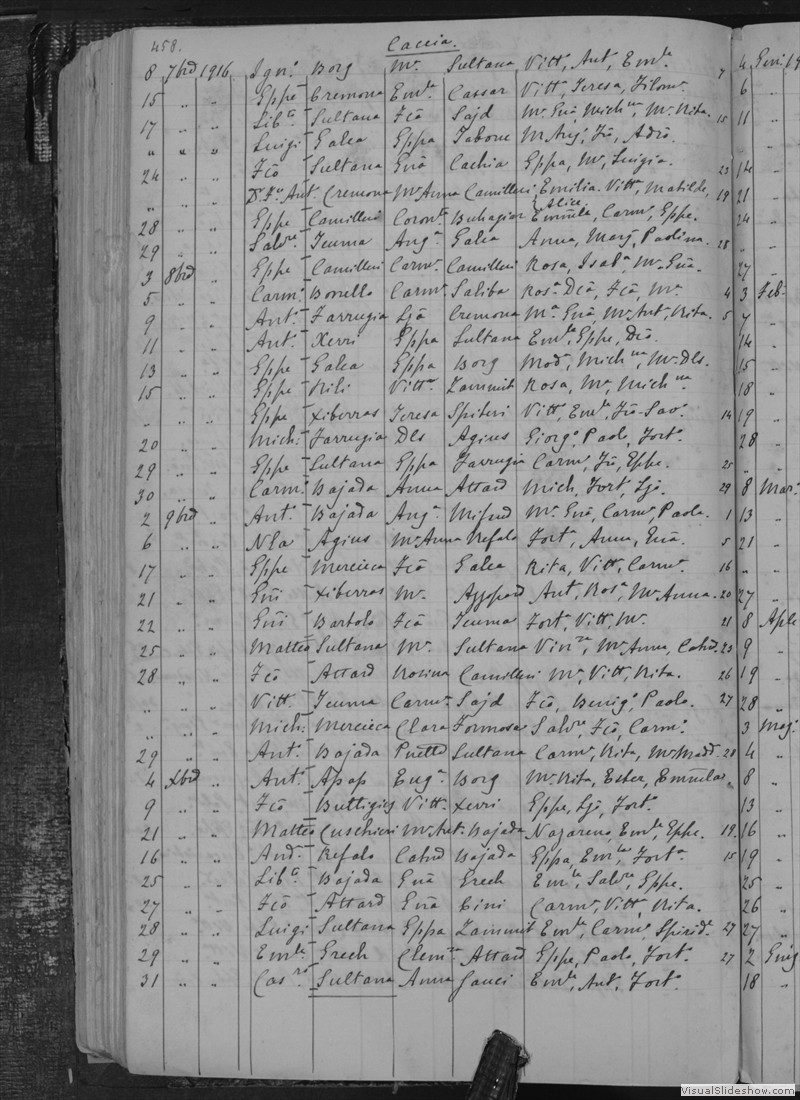 458. Caccia.
8 7brẽ 1916 Ign.º Borg Mª. Sultana Vittª, Antº, Emle. 7 4 Gen: 19
15 " " Eppe Cremona Emla. Cassar Vittª, Teresa, Filomª. 6 "
17 " " Libto Sultana Fcã Sajd Mª Gnã, Michna, Mª Rita. 15 11 "
" " " Luigi Galea Eppa Tabone M. Angª, Fcõ,
24 " " Fcõ Sultana Gnã Cachia Eppa, Mª, Luigia. 23 14 "
" " " Dr. Fco Antº. Cremona Mª Anna Camilleri Emilia. Vittª, Matilde, Alice 19 21 "
28 " " Eppe Camilleri Coronta Buhagiar Emmle, Carmº, Eppe. 24 "
29 " " Salvre Teuma Angª. Galea Anna, Marjª, Paolina. 28 " "
3 8brẽ " Eppe Camilleri Carmª. Camilleri Rosa, Isabª, Mª Gnã. 27 "
5 " " Carmº. Bonello Carmª. Saliba Rosª, Fcã, Mª. 4 3 Feb:
9 " " Antº. Farrugia Ljã Cremona Mª Gnã, Mª Antª, Rita. 5 7 "
11 " " Antº. Xerri Eppa Sultana Emle, Eppe, 14 "
13 " " Eppe Galea Eppa Borg Michna, Mª Dls. 15 "
15 " " Eppe Rili Vittª. Zammit Rosa, Mª, Michna 18 "
" " " Eppe Xiberras Teresa Spiteri Vittº, Emle, Fcõ Savº. 14 19 "
20 " " Mich: Farrugia Dls Agius Giorgº, Paolo, Fortº. 28 "
29 " " Eppe Sultana Eppa Farrugia Carmº, Fcõ, Eppe. 25 " "
30 " " Carmº. Bajada Anna Attard Mich, Fort, Ljõ. 29 8 Mar:
2 9brẽ " Antº. Bajada Angª. Mifsud Mª Gnã, Carmª, Paola. 1 13 "
6 " " Nla Agius Mª Anna Refalo Fortª, Anna, Gnã. 5 21 "
17 " " Eppe Mercieca Fcã Galea Rita, Vittª, Carmª. 16 " "
21 " " Gni Xiberras Mª. Appard Antª, Rosª, Mª Anna. 20 27 "
22 " " Gni Bartolo Fcã Teuma Fortº, Vittº, Mª. 21 8 Aple
25 " " Matteo Sultana Mª. Sultana Vinza, Mª Anna, Catnã. 23 9 "
28 " " Fcõ Attard Rosina Camilleri Mª, Vittª, Rita. 26 19 "
" " " Vitt. Teuma Carmª. Sajd Fcõ, Benigº, Paolo. 27 28 "
" " " Mich: Mercieca Clara Formosa Salvre, Fcõ, Carmº. 3 Magº.
29 " " Antº. Bajada Sultana Carmª, Rita, Mª Madd. 28 4 "
4 Xbrẽ " Antº. Apap Eugª. Borg Mª Rita, Ester, 8 "
9 " " Fcõ Buttigieg Vittª. Xerri Eppe, Ljõ, Fortº. 13 "
21 " " Matteo Cuschieri Mª Antª. Bajada Nazareno, Emle, Eppe. 19. 16 "
16 " " Andª. Refalo Catnã Bajada Eppa, Emla, Fortª 15 19 "
25 " " Libto Bajada Gnã Grech Emle, Salvre, Eppe. 25 "
27 " " Fcõ Attard Gnã Cini Carmª, Vittª, Rita. 26 "
28 " " Luigi Sultana Eppa Zammit Emle, Carmº, Spiride 27 27 "
29 " " Emle. Grech Clemza Attard Eppe, Paolo, Fortº. 27 2 Giug
31 " " Casro Sultana Anna Gauci Emle, Antº, Fortº. 18 "
VisualSlideshow.com